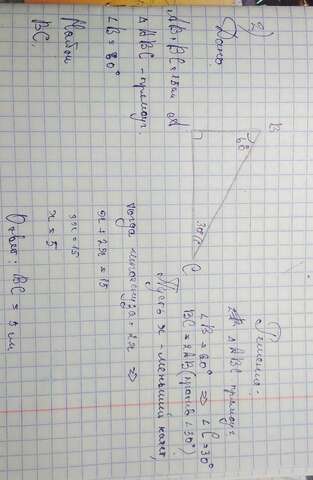 2)
Дано:
AB + BC = 15 см
Δ ABC - прямоуг.
∠B = 60°
Найти
BC.
A
B
60°
30°
C
Решение:
Δ ABC прямоуг
∠B = 60° => ∠C = 30°
BC = 2AB (против ∠30°)
Пусть x - меньший катет,
тогда гипотенуза = 2x =>
x + 2x = 15
3x = 15
x = 5
Ответ: BC = 5 см